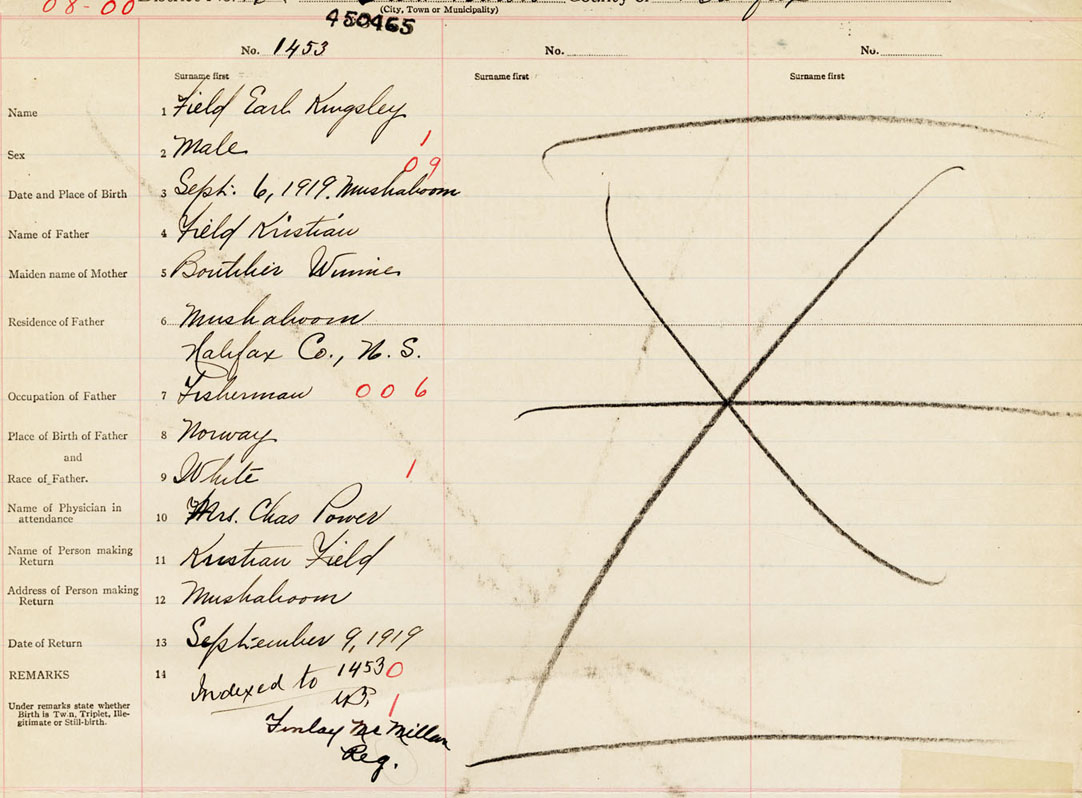 08-00 District No. County of
(City, Town or Municipality)
450465
No. 1453 No. No.
Surname first Surname first Surname first
Name 1 Field Earl Kingsley
Sex 2 Male 1
09
Date and Place of Birth 3 Sept. 6, 1919. Mushaboom
Name of Father 4 Field Kristian
Maiden name of Mother 5 Boutilier Winnie
Residence of Father 6 Mushaboom
Halifax Co., N. S.
Occupation of Father 7 Fisherman 006
Place of Birth of Father 8 Norway
and
Race of Father. 9 White 1
Name of Physician in
attendance 10 Mrs. Chas Power
Name of Person making
Return 11 Kristian Field
Address of Person making
Return 12 Mushaboom
Date of Return 13 September 9, 1919
REMARKS 14 Indexed to 1453 0
1
Under remarks state whether
Birth is Twin, Triplet, Ille-
gitimate or Still-birth.
Finlay McMillan
Reg.